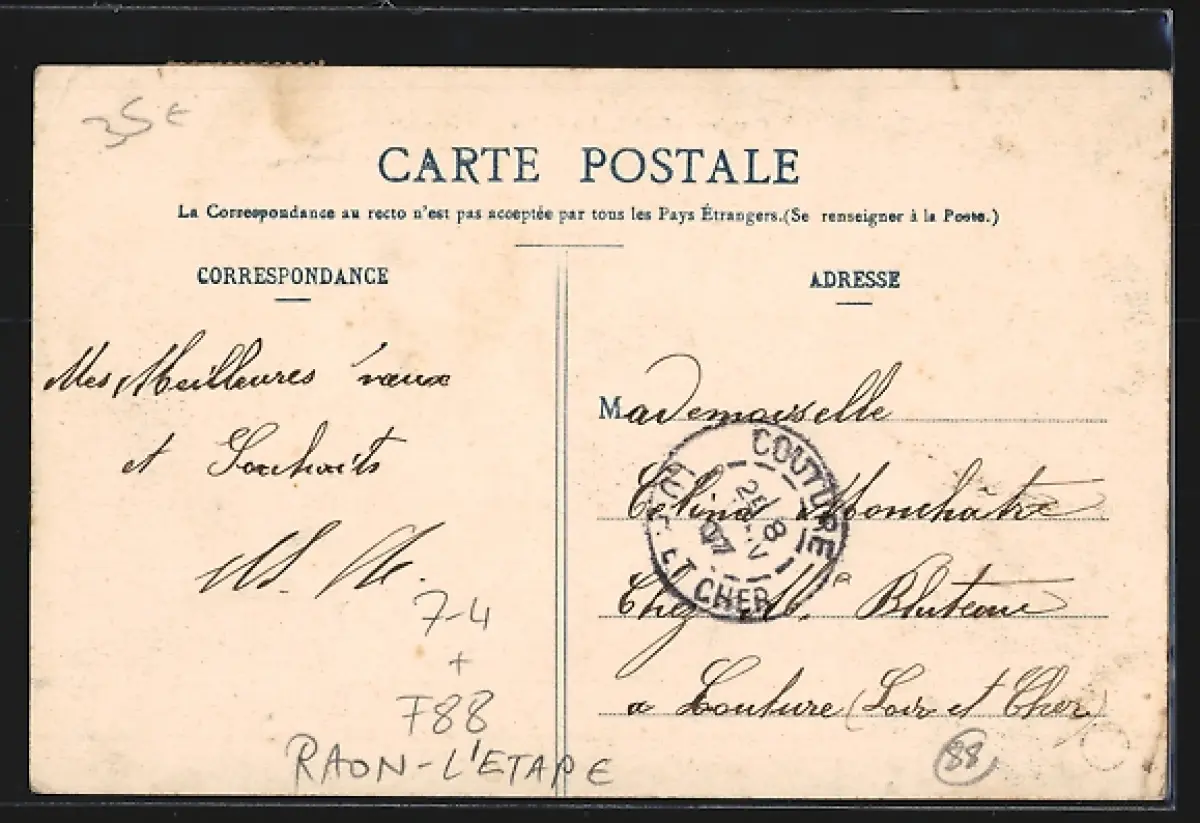 35€
CARTE POSTALE
La Correspondance au recto n'est pas acceptée par tous les Pays Étrangers.(Se renseigner à la Poste.)
CORRESPONDANCE
Mes Meilleures vœux
et Souhaits
7-4
+
F88
RAON-L'ETAPE
ADRESSE
Mademoiselle
Célina Monchâtre
Chez M. Bluteau
a Couture (Loir et Cher)
COUTURE
LOIR ET CHER
07
88